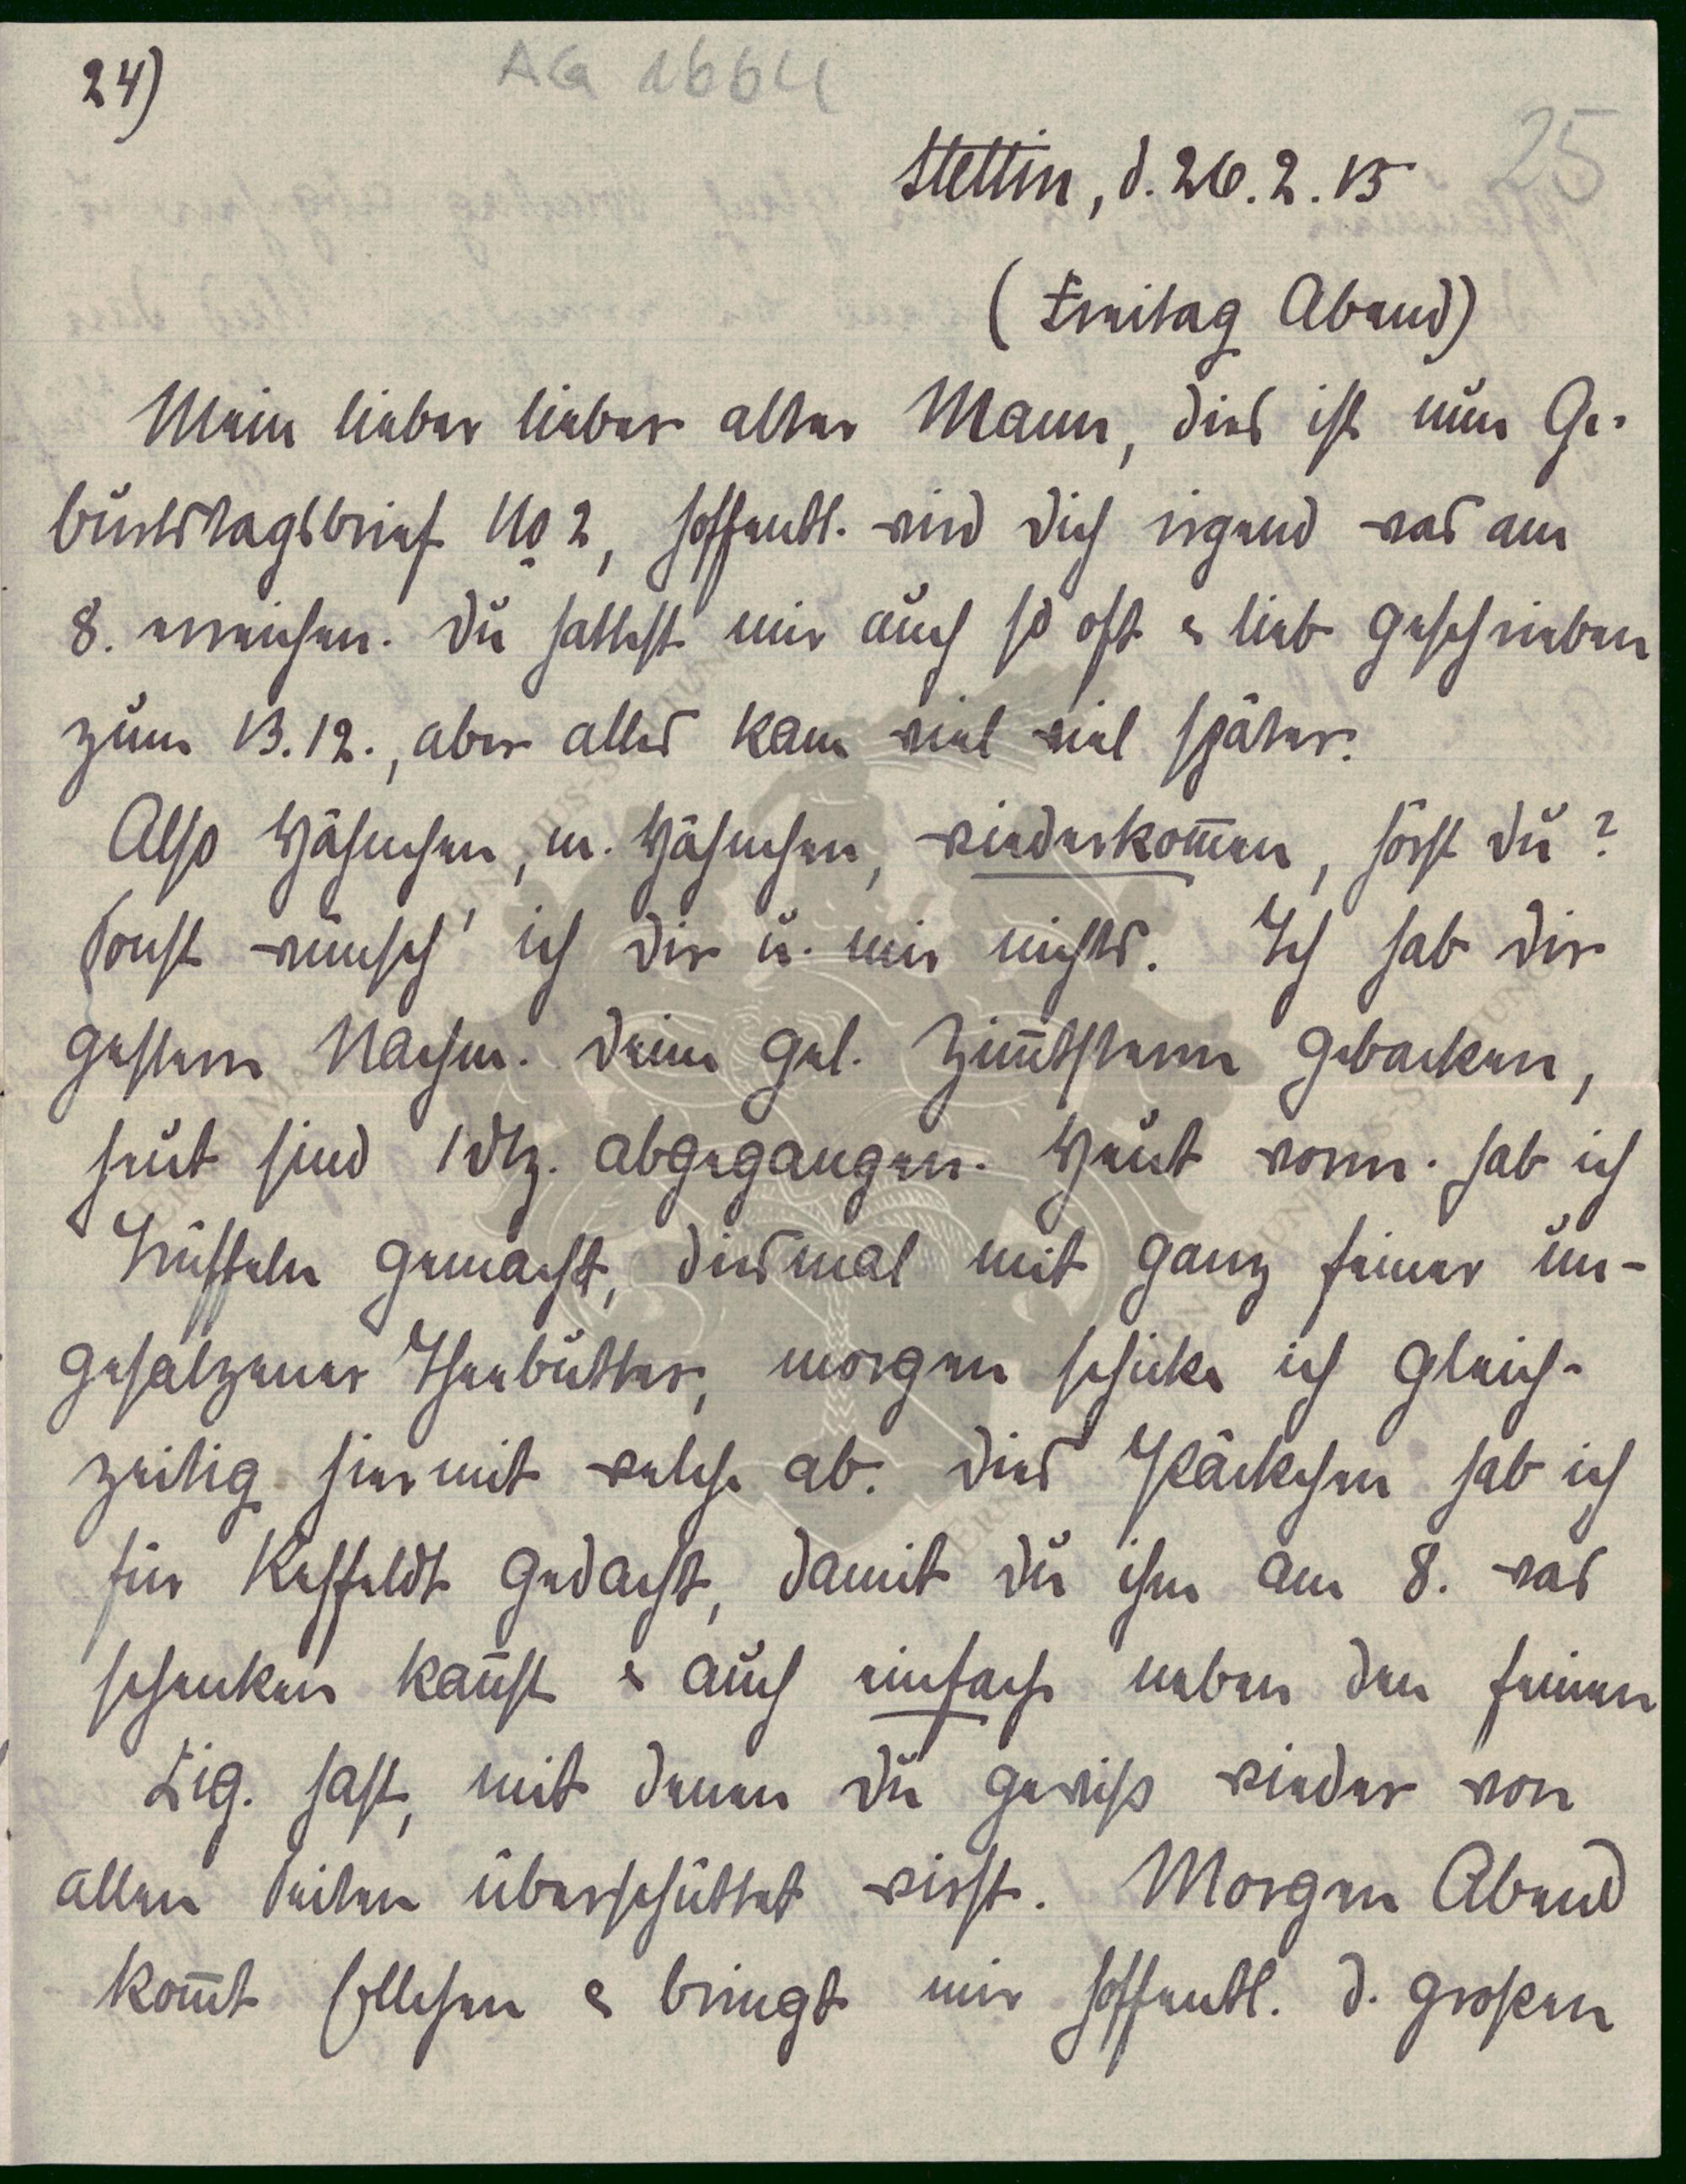 24)
AG 1664
25
Stettin, d. 26.2.15
(Freitag Abend)
Mein lieber lieber alter Mann, dies ist nun Ge-
burtstagsbrief No 2, hoffentl. wird dich irgend was am
8. erreichen. Du hattest mir auch so oft & lieb geschrieben
zum 13.12., aber alles kam viel viel später.
Also Hähnchen, m. Hähnchen, wiederkom̄en, hörst du?
Sonst wünsch' ich dir u. mir nichts. Ich hab dir
gestern Nachm. deine gel. Zim̄tsterne gebacken,
heut sind 1 Dtz. abgegangen. Heut vorm. hab ich
Trüffeln gemacht, diesmal mit ganz feiner un-
gesalzener Theebutter, morgen schicke ich gleich-
zeitig hiermit welche ab. Dies Päckchen hab ich
für Kessfeldt gedacht, damit du ihm am 8. was
schenken kan̄st & auch einfache neben den feinen
Zig. hast, mit denen du gewiss wieder von
allen Seiten überschüttet wirst. Morgen Abend
kom̄t Ellchen & bringt mir hoffentl. d. großen